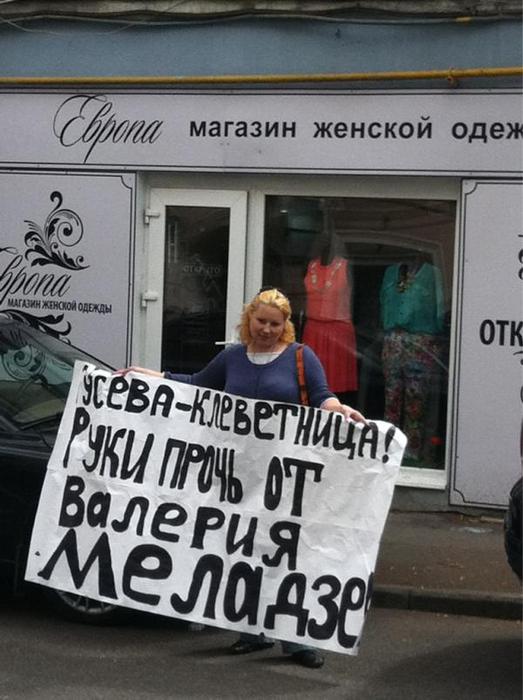 Европа магазин женской одеж
ОТКРЫТО
Европа
МАГАЗИН ЖЕНСКОЙ ОДЕЖДЫ
ОТК
УСЕВА-КЛЕВЕТНИЦА!
РУКИ ПРОЧЬ ОТ
ВАЛЕРИЯ
МЕЛАДЗЕ!